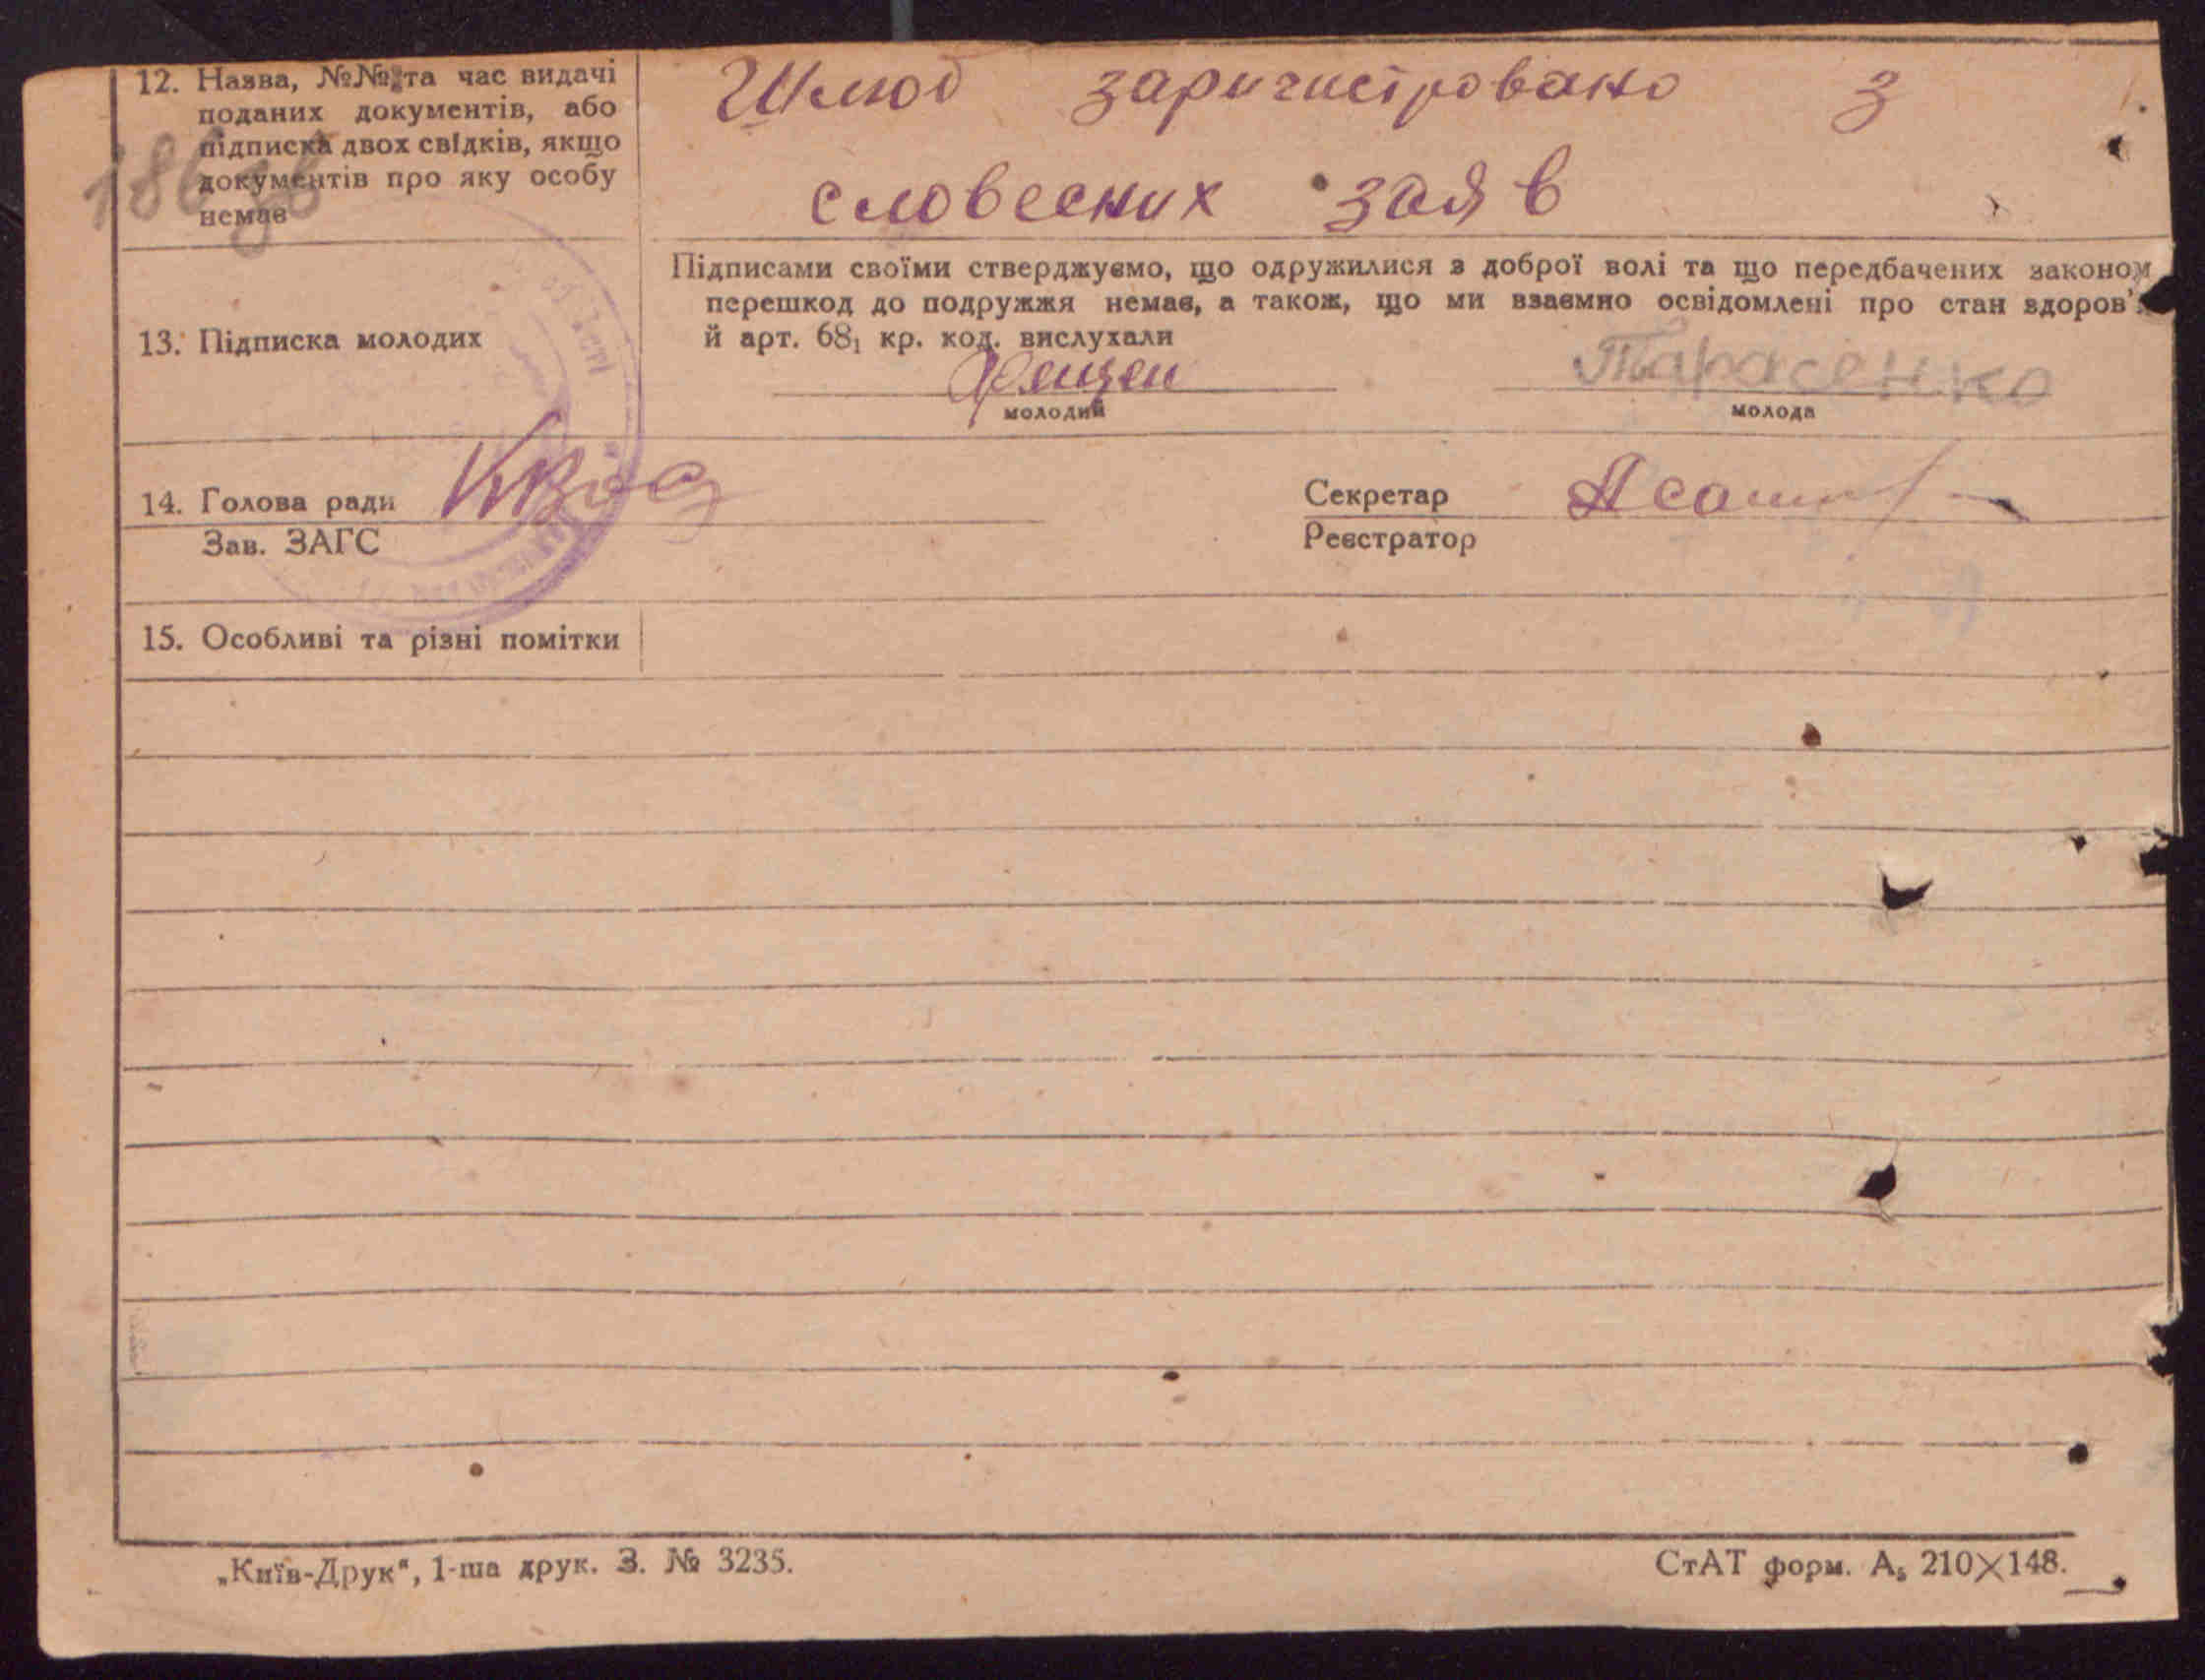 12. Назва, №№ та час видачі
поданих документів, або
підписка двох свідків, якщо
документів про яку особу
немає
Шлюб заригистровано з
словесних заяв
186 зв
13. Підписка молодих
Підписами своїми стверджуємо, що одружилися з доброї волі та що передбачених законом
перешкод до подружжя немає, а також, що ми взаємно освідомлені про стан здоров'
й арт. 68₁ кр. код. вислухали
Тарасенко
молодий молода
14. Голова ради
Секретар
Зав. ЗАГС
Реєстратор
15. Особливі та різні помітки
„Київ-Друк“, 1-ша друк. З. № 3235.
СтАТ форм. А₅ 210×148.